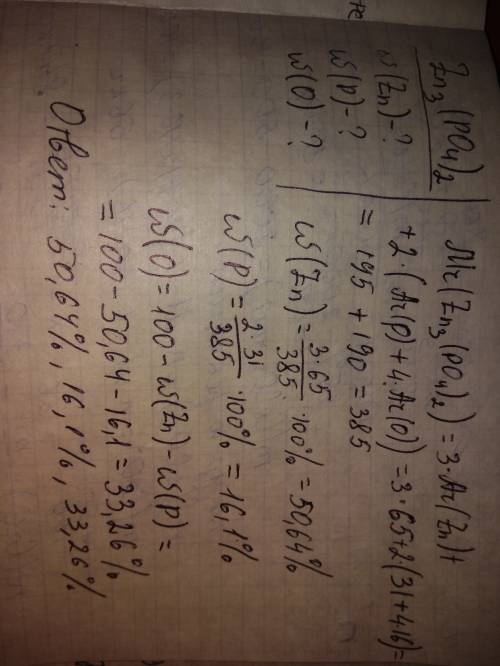 Zn₃(PO₄)₂
w(Zn)-?
w(P)-?
w(O)-?
Mr(Zn₃(PO₄)₂) = 3·Ar(Zn)+
+2·(Ar(P)+4·Ar(O)) = 3·65+2·(31+4·16)=
= 195 + 190 = 385
w(Zn) = 3·65/385 ·100% = 50,64%
w(P) = 2·31/385 ·100% = 16,1%
w(O) = 100 - w(Zn) - w(P) =
= 100 - 50,64 - 16,1 = 33,26%
Ответ: 50,64%, 16,1%, 33,26%